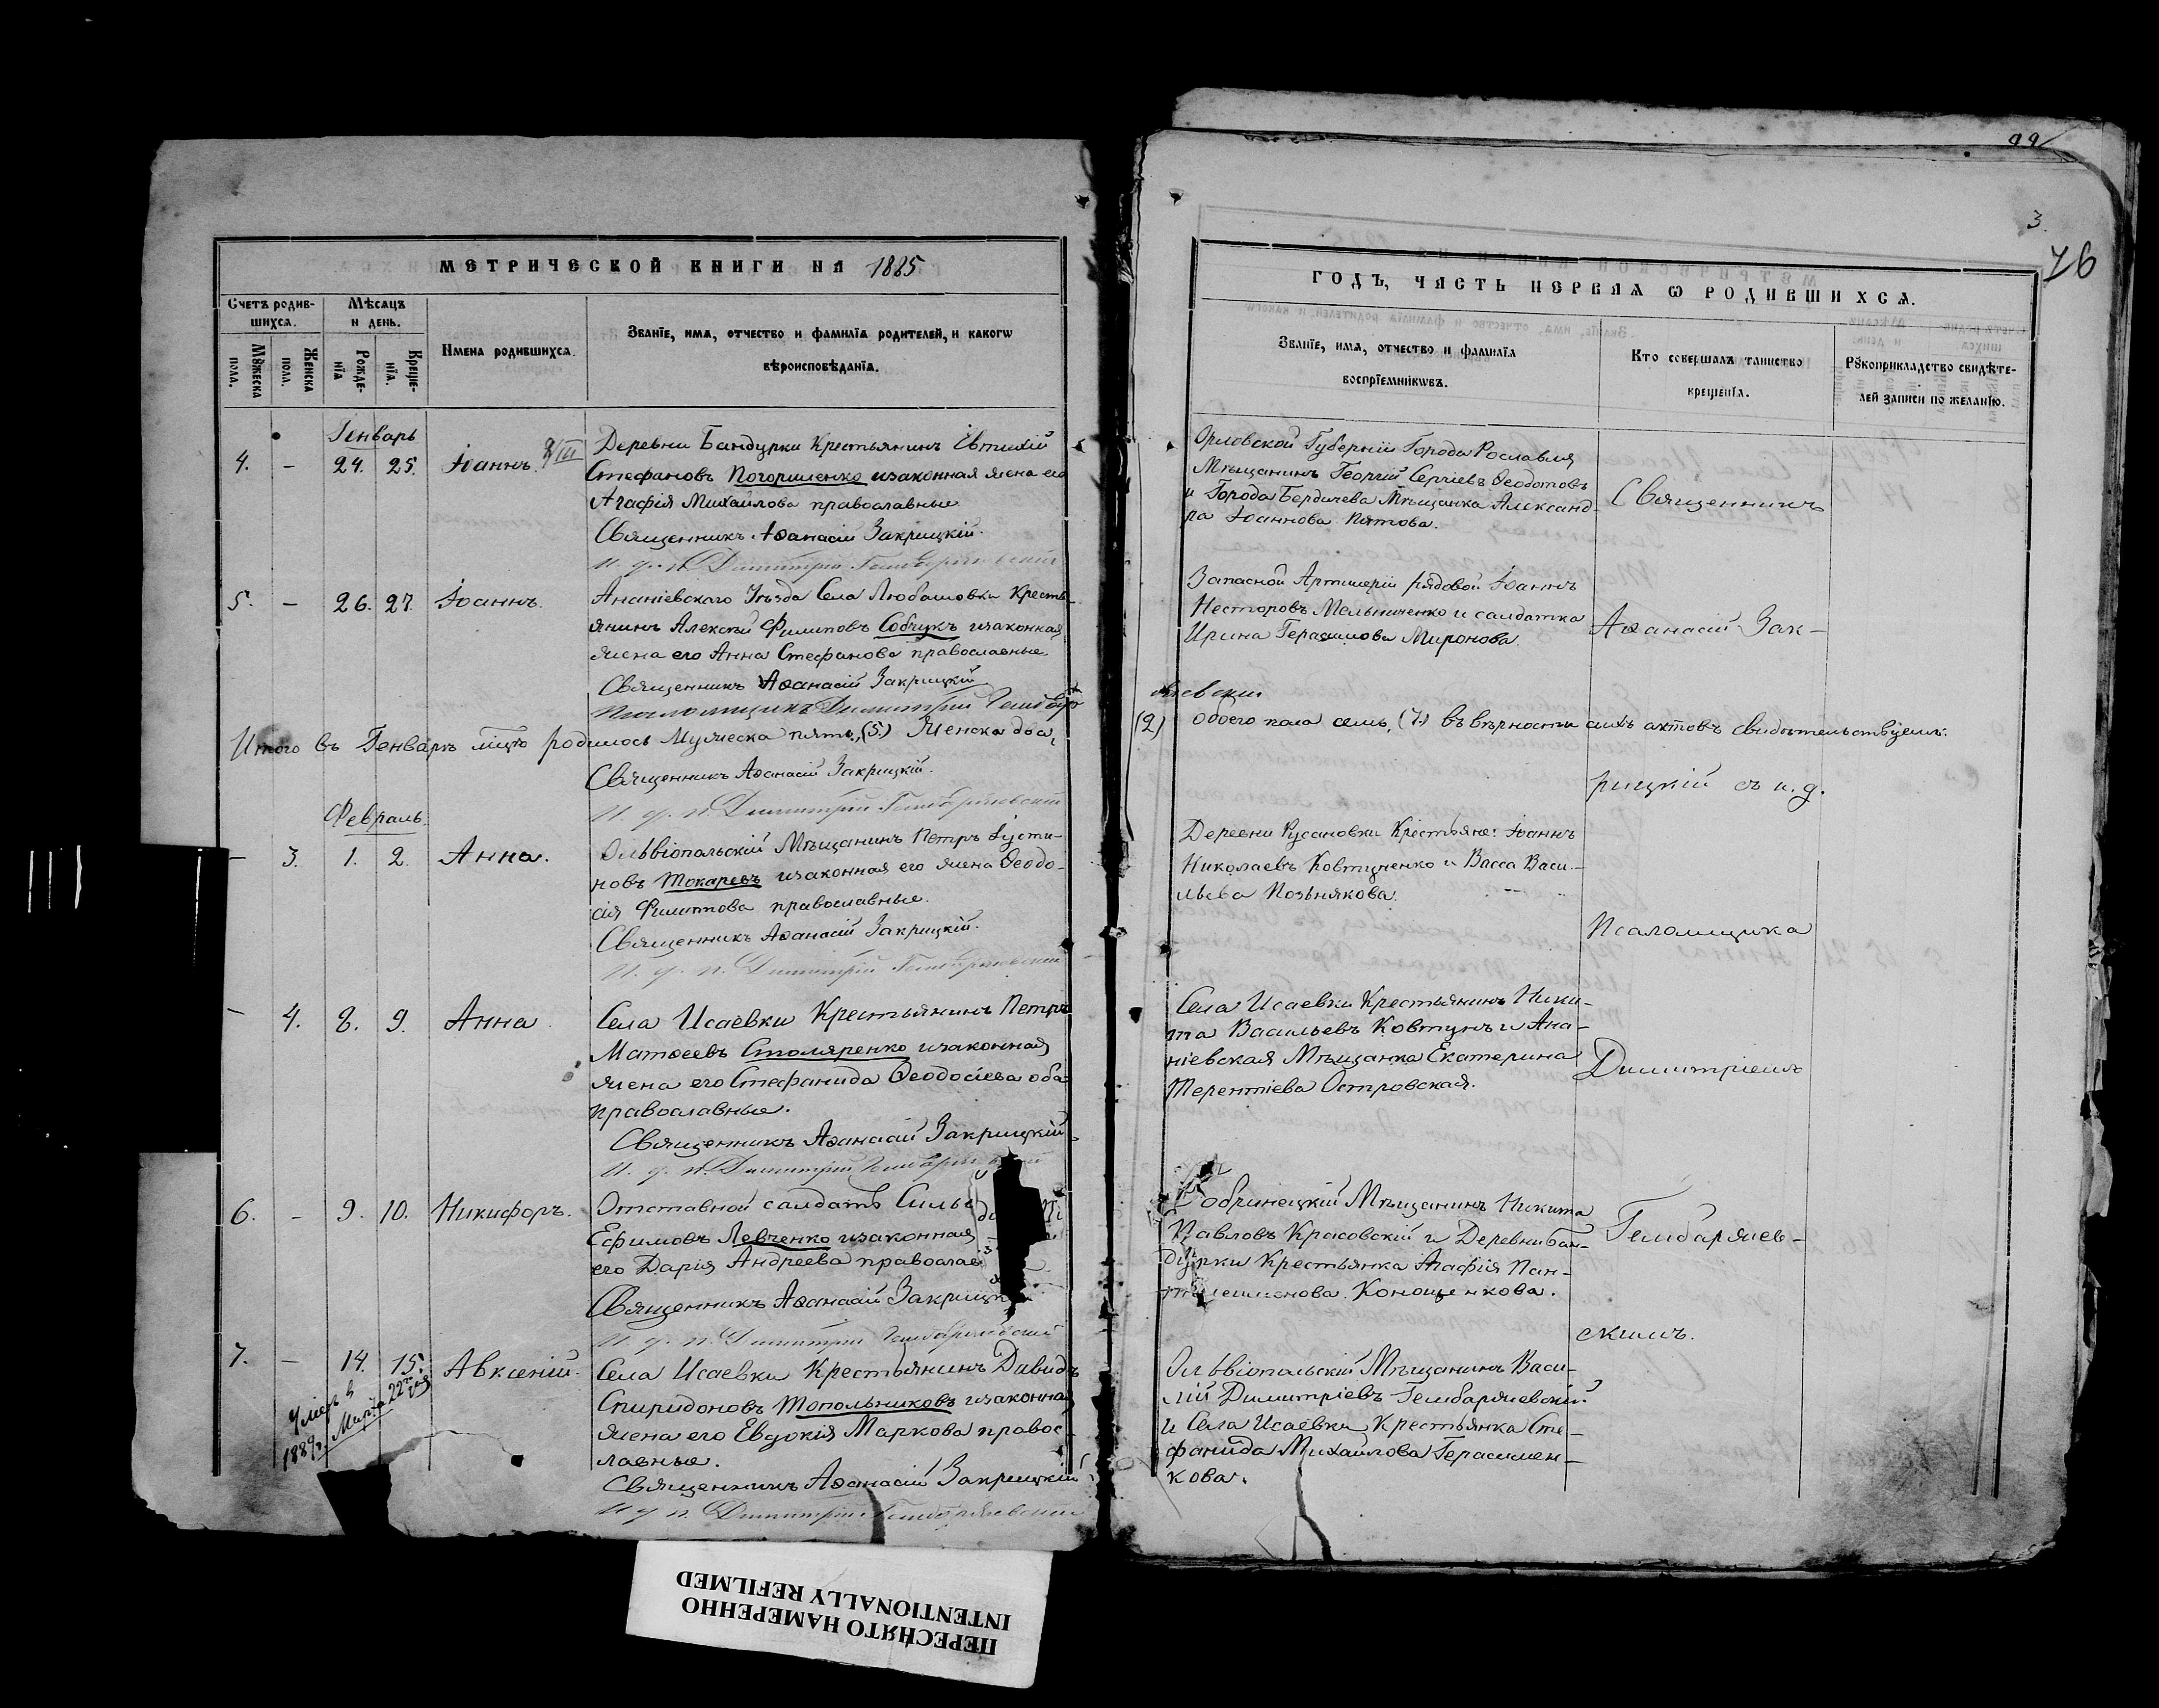 МЕТРИЧЕСКОЙ КНИГИ НА 1885
Счетъ родив-
шихсѧ.
Мѣсѧцъ
и день.
Мꙋжеска
пола.
Женска
пола.
Рожде-
нїѧ
Креще-
нїѧ.
Имена родившихсѧ.
Званїе, имѧ, отчество и фамилїѧ родителей, и какогѡ
вѣроисповѣданїѧ.
Генварь
4. – 24. 25. Іоаннъ. Деревни Бандурки Крестьянинъ Евтихій
Стефановъ Погориленко изаконная жена его
Агафія Михайлова православные
Священникъ Аѳанасій Закрицкій.
И. д. п. Димитрій Гембаржевскій
5. – 26. 27. Іоаннъ. Ананіевскаго Уѣзда Села Любашовки Кресть-
янинъ Алексѣй Филиповъ Собчукъ изаконная
жена его Анна Стефанова православные.
Священникъ Аѳанасій Закрицкій
Псаломщикъ Димитрій Гембар
Итого въ Генварѣ мцѣ родилось Мужеска пять, (5.) Женска два,
Священникъ Аѳанасій Закрицкій.
И. д. п. Димитрій Гембаржевскій
Февраль.
– 3. 1. 2. Анна. Ольвіопольскій Мѣщанинъ Петръ Іусти-
новъ Токаревъ изаконная его жена Ѳеодо-
сія Филиппова православные.
Священникъ Аѳанасій Закрицкій.
И. д. п. Димитрій Гембаржевскій
– 4. 8. 9. Анна. Села Исаевки Крестьянинъ Петръ
Матѳеевъ Столяренко изаконная
жена его Стефанида Ѳеодосіева оба
православные.
Священникъ Аѳанасій Закрицкій
И. д. п. Димитрій Гембаржевскій
6. – 9. 10. Никифоръ. Отставной салдатъ
Ефимовъ Левченко изаконная
его Дарія Андреева православ
Священникъ Аѳанасій Закрицк
И. д. п. Димитрій Гембаржевскій
7. – 14. 15. Авксеній. Села Исаевки Крестьянинъ Давидъ
Спиридоновъ Топольниковъ изаконная
жена его Евдокія Маркова правос-
лавные.
Священникъ Аѳанасій Закрицкій
И. д. п. Димитрій Гембаржевскій
Умеръ в
1889г. Марта 22го дня
3.
76
ГОДЪ, ЧАСТЬ ПЕРВАѦ Ѡ РОДИВШИХСѦ.
Званїе, имѧ, отчество и фамилїѧ
воспрїемникѡвъ.
Кто совершалъ таинство
крещенїѧ.
Рꙋкоприкладство свидѣте-
лей записи по желанїю.
Орловской Губерніи Города Рославля
Мѣщанинъ Георгій Сергіевъ Ѳеодотовъ
и Города Бердичева Мѣщанка Александ-
ра Іоаннова Пятова.
Священникъ
Запасной Артилеріи рядовой Іоаннъ
Несторовъ Мельниченко и салдатка
Ирина Герасимова Миронова.
Аѳанасій Зак-
жевскій
(2) обоего пола семь, (7.) въ вѣрности сихъ актовъ свидѣтельствуемъ:
рицкій съ и. д.
Деревни Русановки Крестьяне: Іоаннъ
Николаевъ Ковтуненко и Васса Васи-
льева Позьнякова.
Псаломщика
Села Исаевки Крестьянинъ Ники-
та Васильевъ Ковтунъ и Ана-
ніевская Мѣщанка Екатерина
Терентіева Островская.
Димитріемъ
Бобринецкій Мѣщанинъ Никита
Павловъ Красовскій и Деревни Бан-
дурки Крестьянка Агафія Пан-
телеимонова Конощенкова.
Гембаржев-
скимъ.
Ольвіопольскій Мѣщанинъ Васи-
лій Димитріевъ Гембаржевскій
и Села Исаевки Крестьянка Сте-
фанида Михайлова Герасимен-
кова.
ПЕРЕСНЯТО НАМЕРЕННО
INTENTIONALLY REFILMED